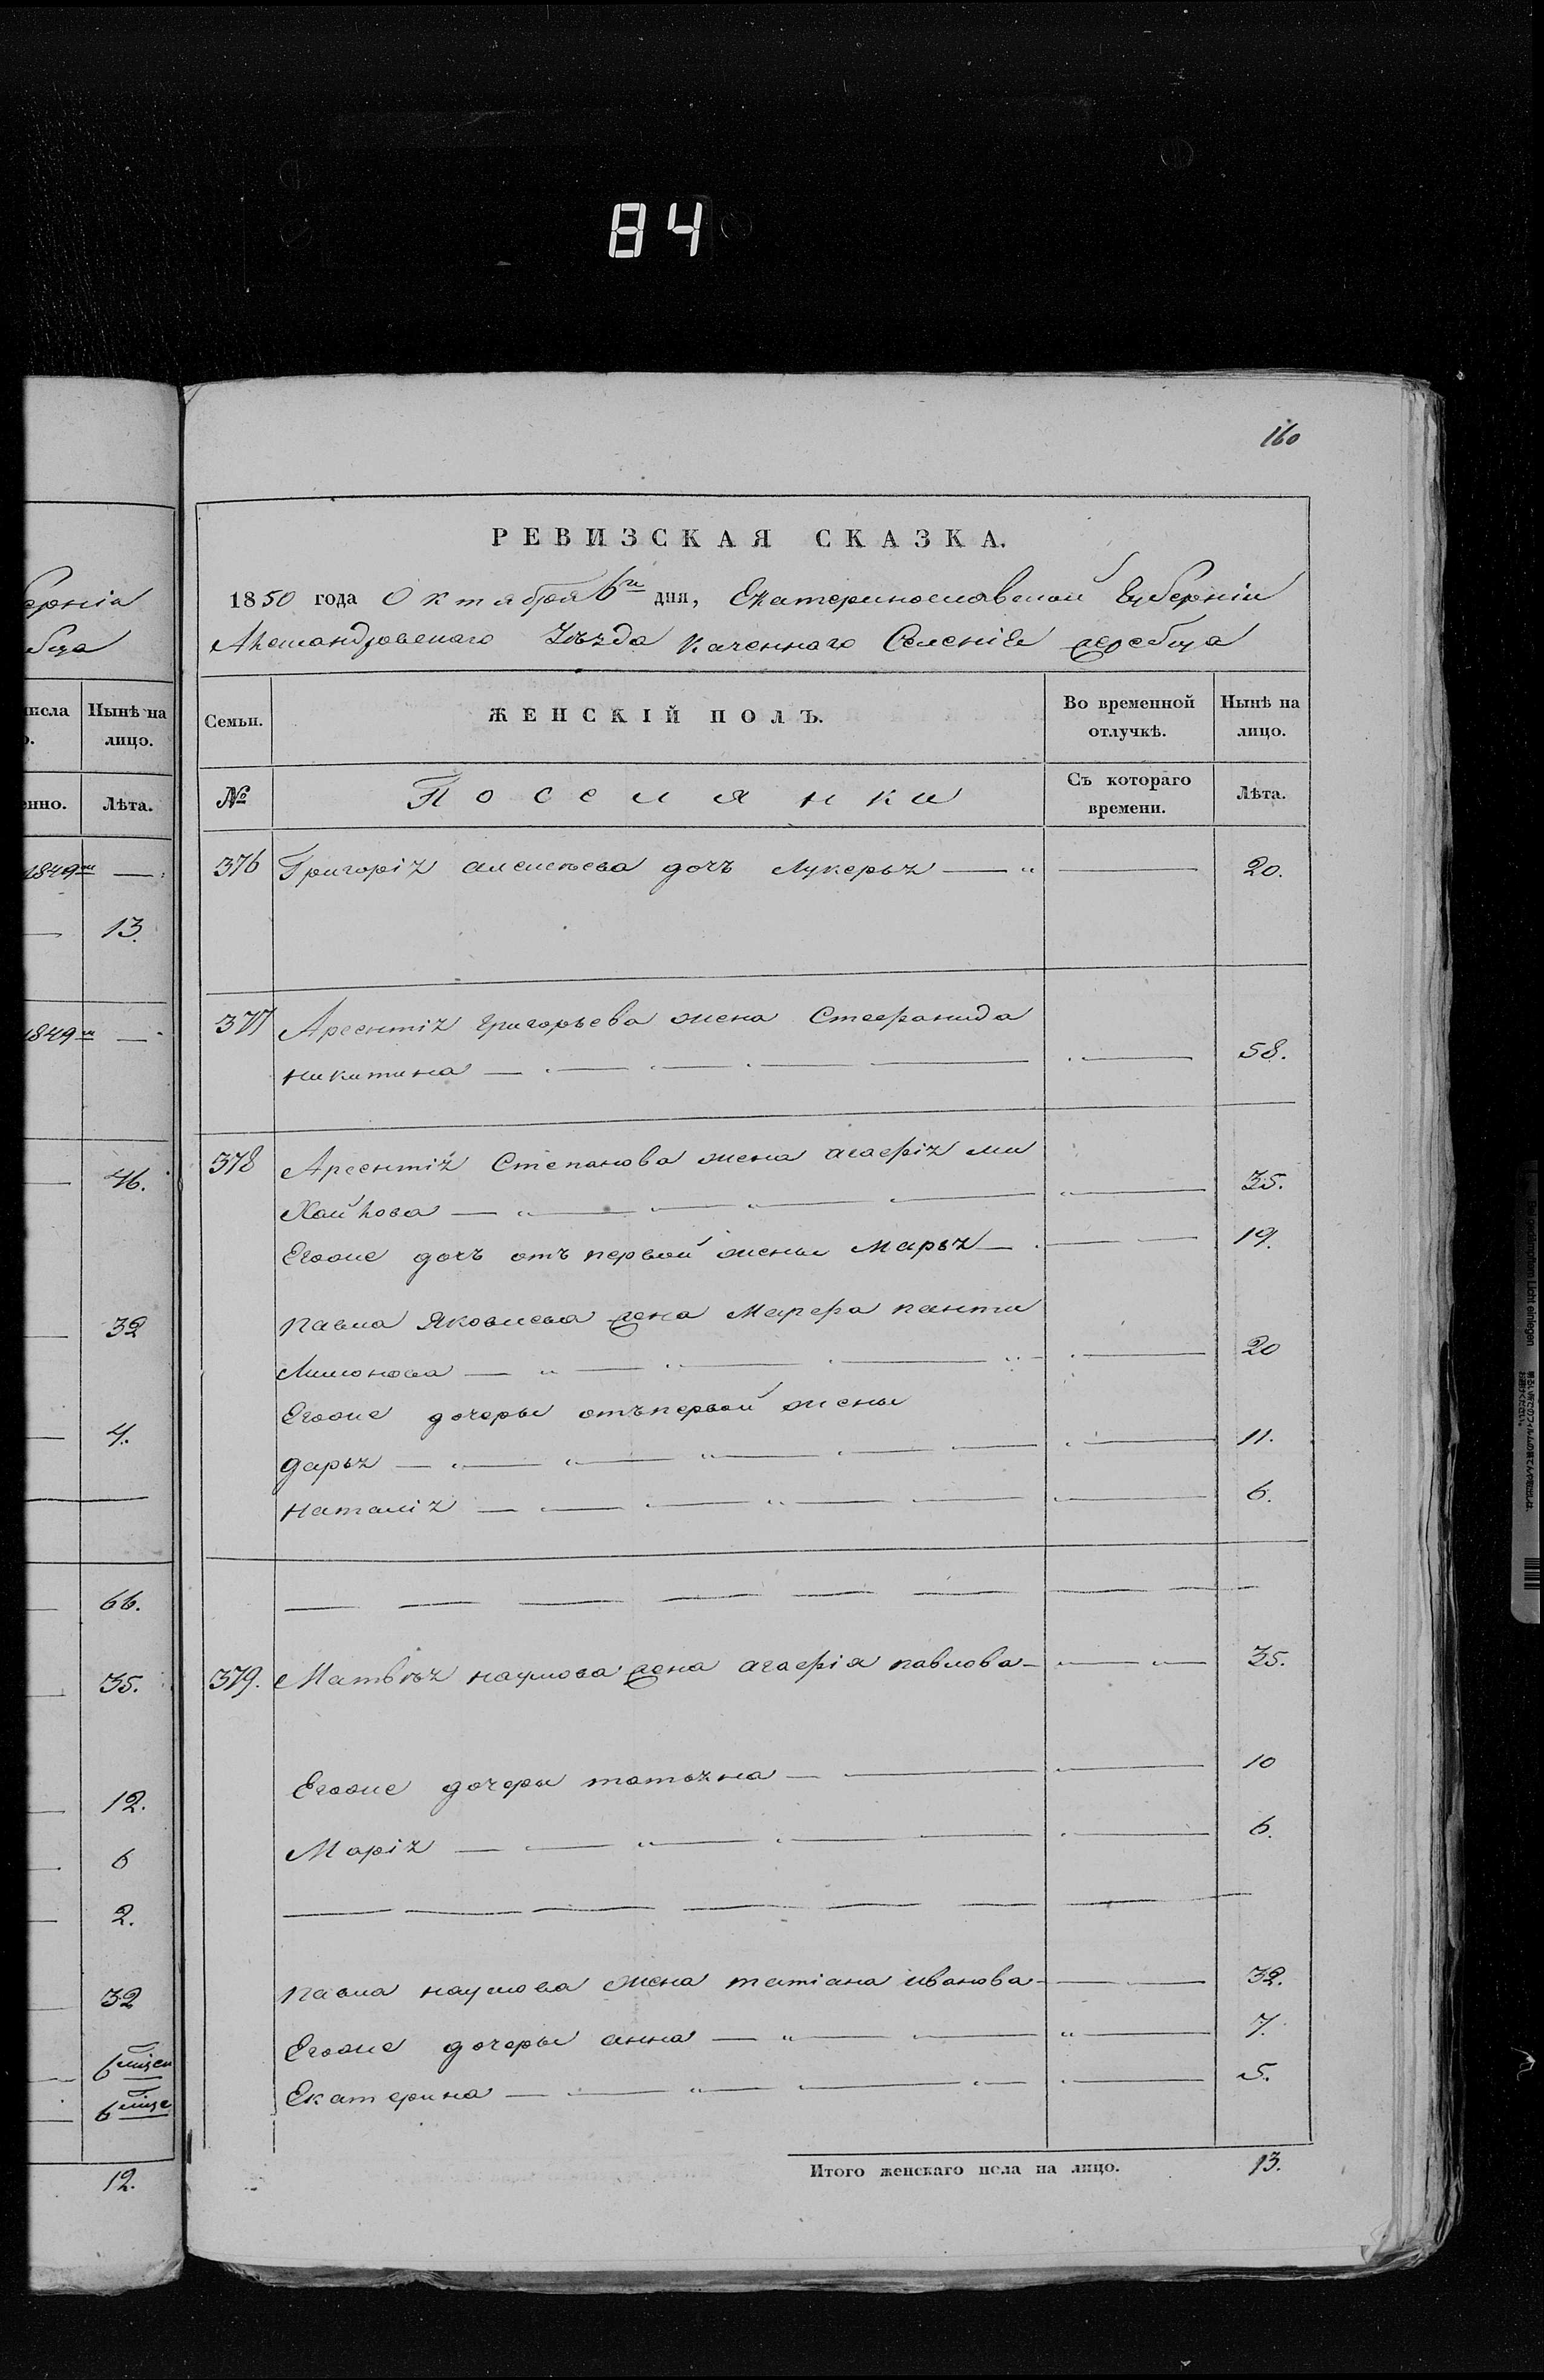 84
160
РЕВИЗСКАЯ СКАЗКА.
1850 года Октября 6го дня, Екатеринославской Губерніи
Александровскаго Уѣзда Казеннаго Селенія Жеребца
Семьи.
ЖЕНСКІЙ ПОЛЪ.
Во временной отлучкѣ.
Нынѣ на лицо.
№
Поселянки
Съ котораго времени.
Лѣта.
376 Григорія алексѣева дочъ Лукерья — 20.
377 Арсентія григорьева жена Стефанида
никитина — 58.
378 Арсентія Степанова жена агафія ми
хайлова — 35.
Егоже дочъ отъ первой жены Марья — 19.
павла Яковлева жена Марфа панти
лимонова — 20
Егоже дочеры отъ первой жены
дарья — 11.
наталія — 6.
379. Матвѣя наумова жена агафія павлова — 35.
Егоже дочеры татьяна — 10
Марія — 6.
павла наумова жена татіана иванова — 32.
Егоже дочеры анна — 7.
Екатерина — 5.
Итого женскаго пола на лицо. 13.
ерніа
бца
исла
Нынѣ на лицо.
нно.
Лѣта.
1849
13.
1849
46.
32
4.
66.
35.
12.
6
2.
32
6
6
12.